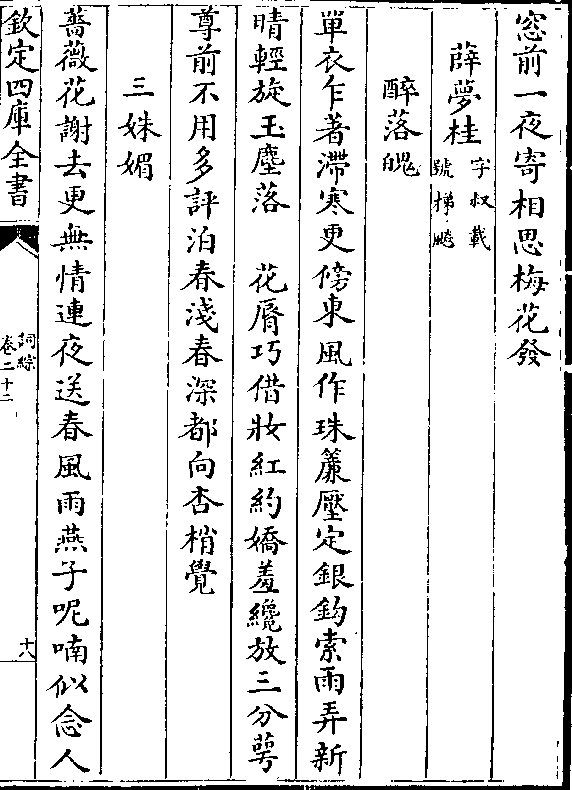 窓前一夜寄相思梅花發
薛夢桂字叔載號梯飈
醉落魄
單衣乍著滯寒更傍東風作珠簾壓定銀鈎索雨弄新
晴輕旋玉塵落　花脣巧借妝紅約嬌羞纔放三分萼
尊前不用多評泊春淺春深都向杏梢覺
三姝媚
薔薇花謝去更無情連夜送春風雨燕子呢喃似念人
欽定四庫全書
詞綜
卷二十二
十八